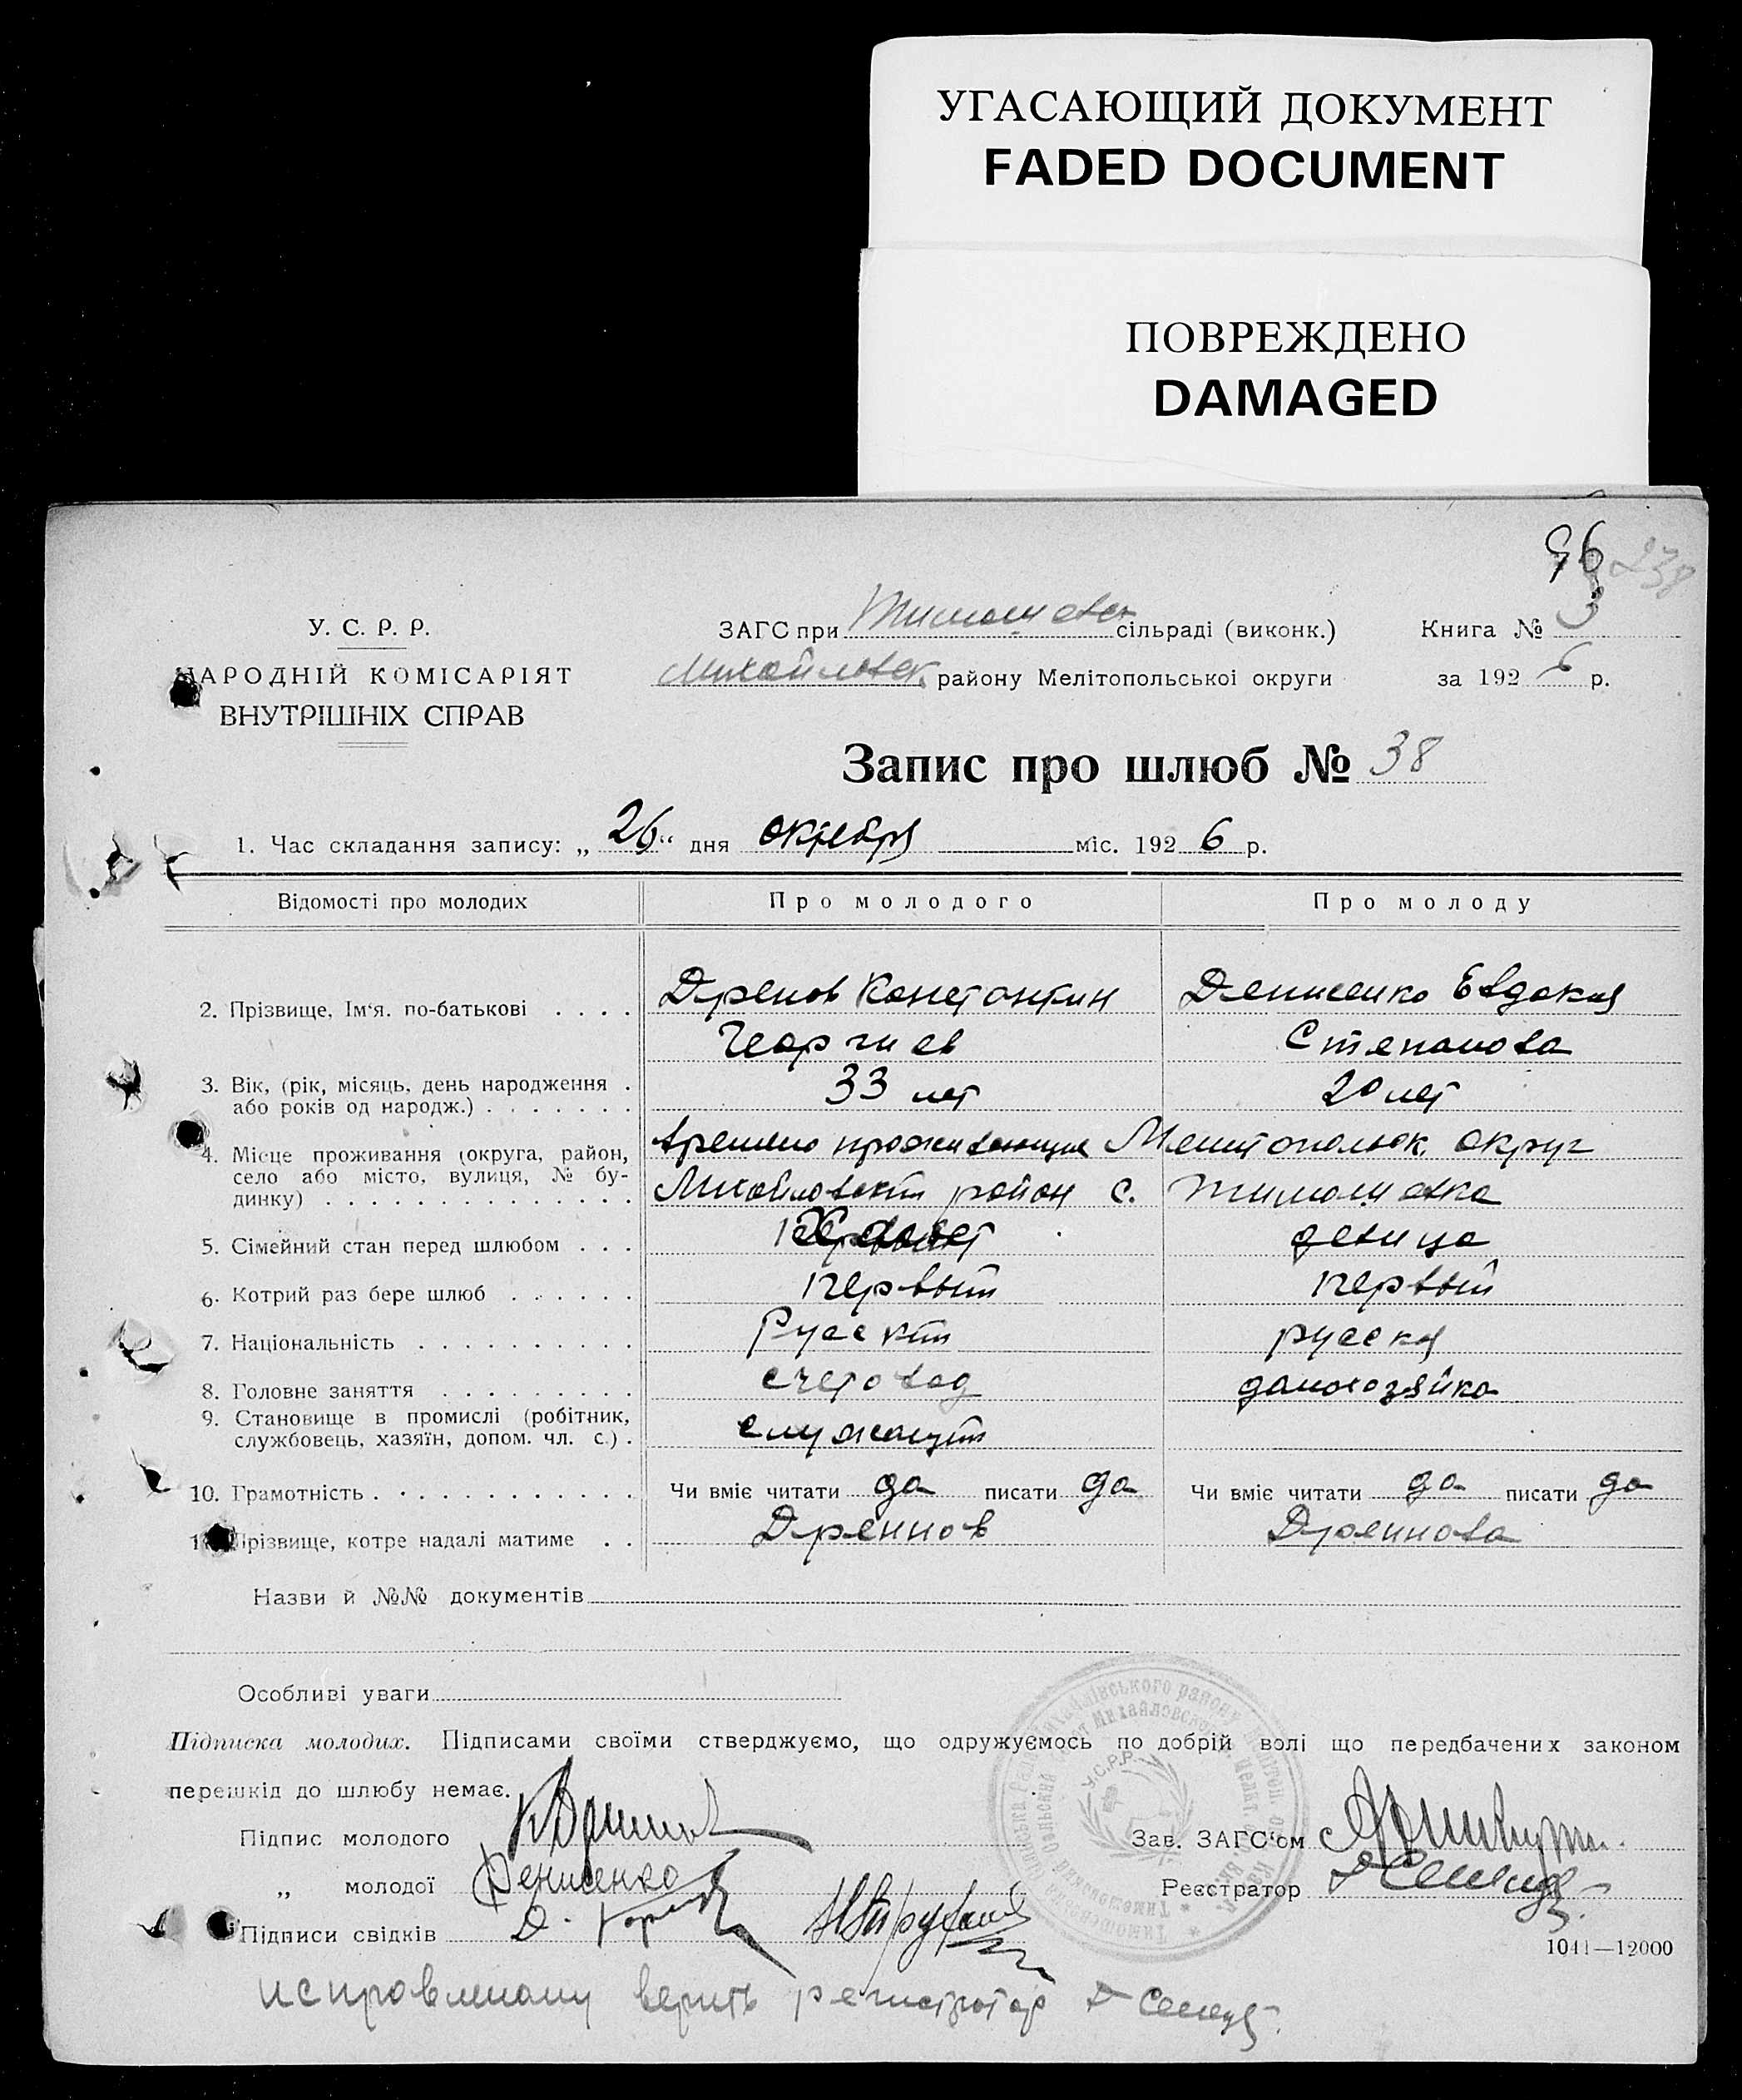 УГАСАЮЩИЙ ДОКУМЕНТ
FADED DOCUMENT
ПОВРЕЖДЕНО
DAMAGED
96 238
У. С. Р. Р.
НАРОДНІЙ КОМІСАРІЯТ
ВНУТРІШНІХ СПРАВ
ЗАГС при Тимошевск сільраді (виконк.) Книга № 3
Михайловск. району Мелітопольської округи за 1926 р.
Запис про шлюб № 38
1. Час складання запису: „ 26 “ дня октября міс. 1926 р.
Відомості про молодих Про молодого Про молоду
2. Прізвище, Ім'я. по-батькові . . . . Дренов Константин Денисенко Евдокия
Георгиев Степанова
3. Вік, (рік, місяць, день народження . 33 лет 20 лет
або років од народж.) . . . . . . .
4. Місце проживання (округа, район, временно проживающия Мелитопольск. округ
село або місто, вулиця, № бу-
динку) . . . . . . . . . . . . . . Михайловский район с. Тимошевка
5. Сімейний стан перед шлюбом . . . Холост девица
6. Котрий раз бере шлюб . . . . . . первый первый
7. Національність . . . . . . . . . . Русский русская
8. Головне заняття . . . . . . . . . счетовод домохозяйка
9. Становище в промислі (робітник,
службовець, хазяїн, допом. чл. с.) . служащий
10. Грамотність . . . . . . . . . . . . Чи вміє читати да писати да Чи вміє читати да писати да
11. Прізвище, котре надалі матиме . . Дреннов Дреннова
Назви й №№ документів
Особливі уваги
Підписка молодих. Підписами своїми стверджуємо, що одружуємось по добрій волі що передбачених законом
перешкід до шлюбу немає.
Підпис молодого Зав. ЗАГС'ом
„ молодої Денисенко Реєстратор
Підписи свідків
У.С.Р.Р.
1041—12000
исправленому верить регистратор